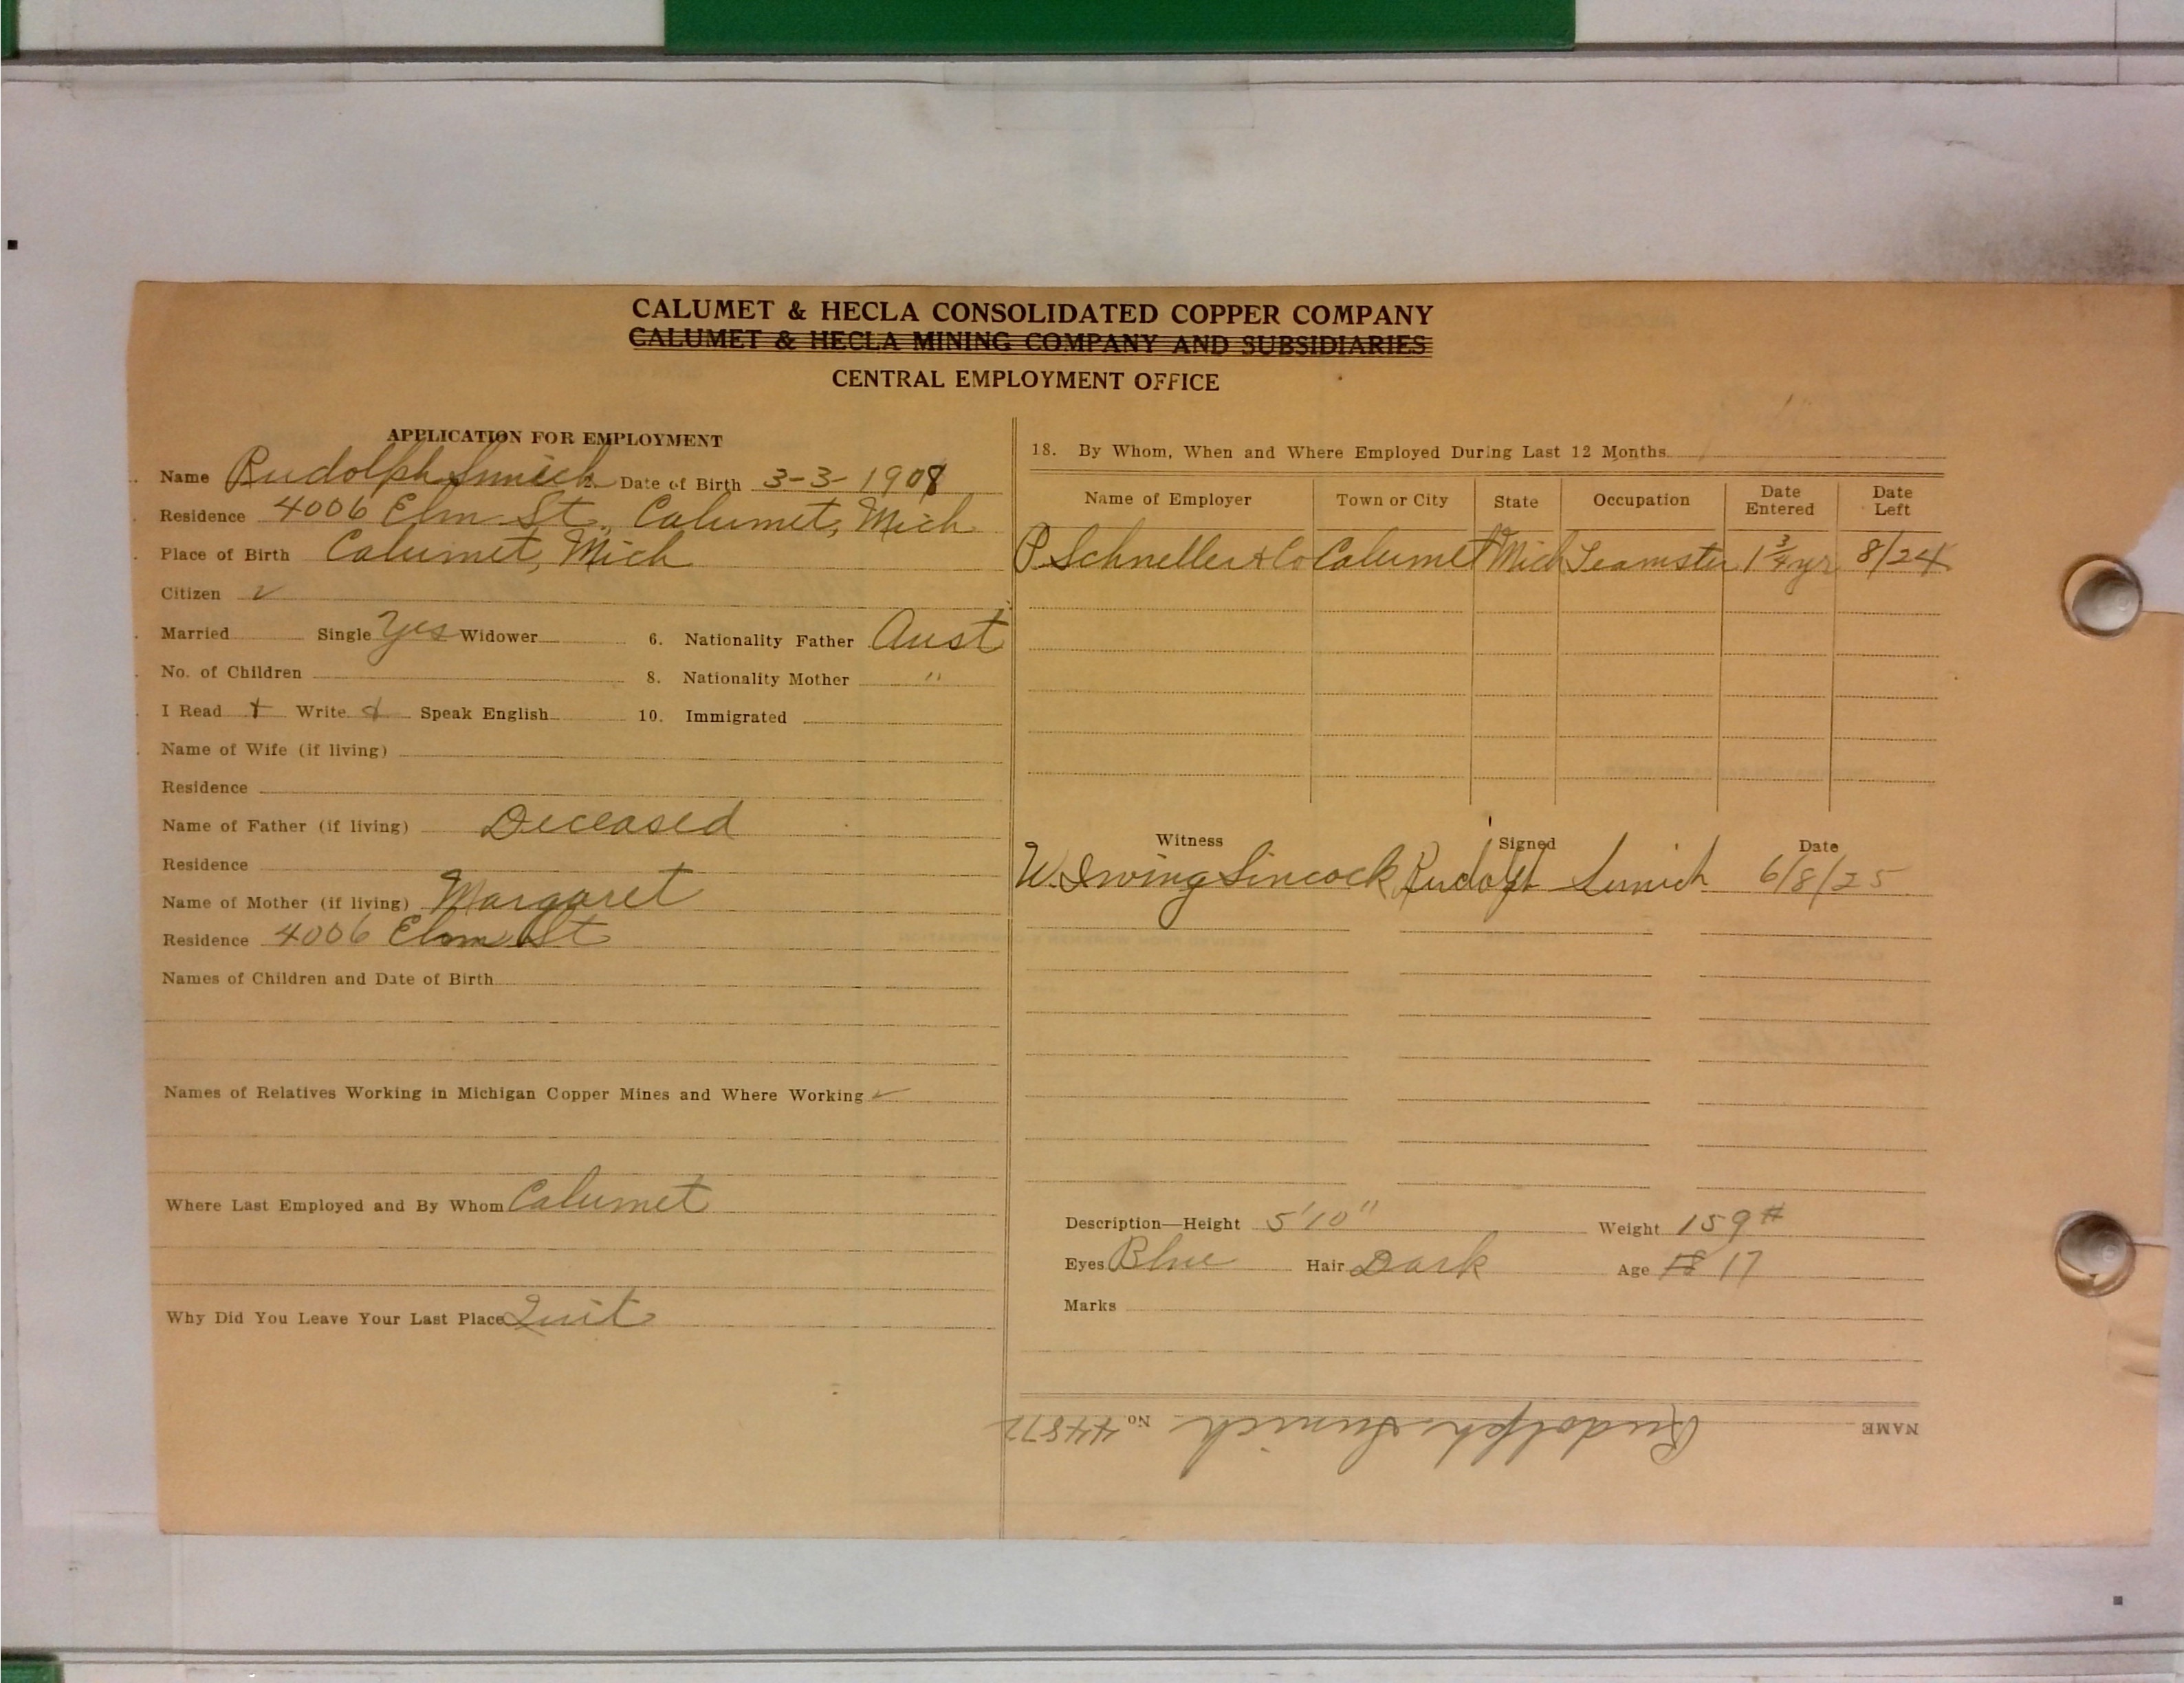 CALUMET & HECLA CONSOLIDATED COPPER COMPANY
CALUMET & HECLA MINING COMPANY AND SUBSIDIARIES
CENTRAL EMPLOYMENT OFFICE
APPLICATION FOR EMPLOYMENT
Name Rudolph 2. Date of Birth 3-3-1908
Residence 4006 Elm St., Calumet, Mich
Place of Birth Calumet, Mich
Citizen ✓
Married Single Yes Widower 6. Nationality Father Aust
No. of Children 8. Nationality Mother "
I Read + Write + Speak English 10. Immigrated
Name of Wife (if living)
Residence
Name of Father (if living) Deceased
Residence
Name of Mother (if living) Margaret
Residence 4006 Elm St
Names of Children and Date of Birth
Names of Relatives Working in Michigan Copper Mines and Where Working ✓
Where Last Employed and By Whom Calumet
Why Did You Leave Your Last Place Quit
18. By Whom, When and Where Employed During Last 12 Months
Name of Employer Town or City State Occupation Date Entered Date Left
P. Schneller & Co Calumet Mich Teamster 1 3/4 yr 8/24
Witness Signed Date
W. Irving Sincock Rudolph 6/8/25
Description—Height 5'10" Weight 159#
Eyes Blue Hair Dark Age 18 17
Marks
NAME Rudolph No. 44872